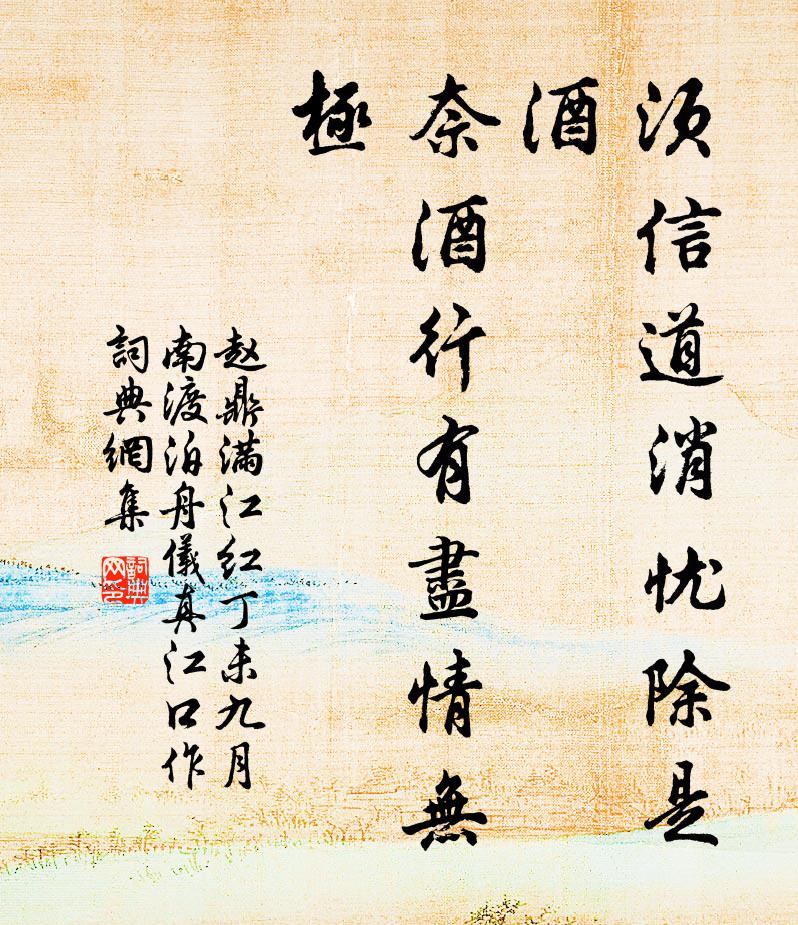 须信道消忧除是
酒
奈酒行有盡情無
極
赵鼎满江红丁未九月
南渡泊舟儀真江口作
詞典網集
詞典网